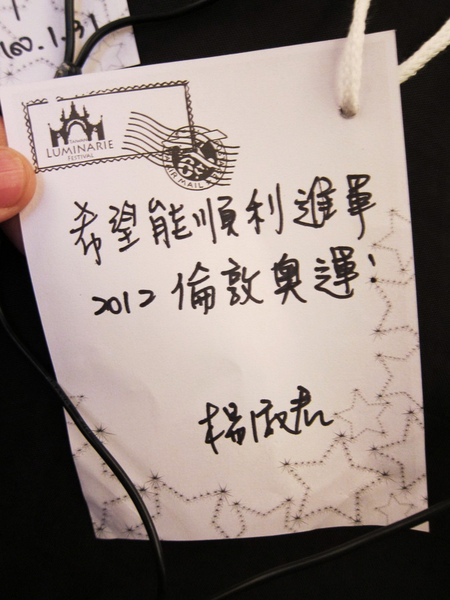 LUMINARIE
FESTIVAL
AIR MAIL
希望能順利進軍
2012 倫敦奧運!
楊淑君